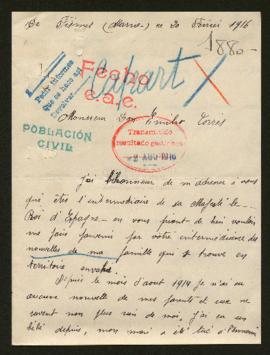 De Fismes (Marne) le 20 Février 1916
1880
Pedir informes
que se hace así
Fecho
e.a.c.
Capart X
Monsieur Don Emilio Torrès
POBLACIÓN
CIVIL
Transmitido
resultado gestiones
2 AGO 1916
J'ai l'honneur de m'adresser à vous
que êtes l'intermédiaire de sa Majesté le
Roi d'Espagne en vous priant de bien vouloir
me faire parvenir par votre intermédiaire des
nouvelles de ma famille qui se trouve en
territoire envahi
Depuis le mois d'août 1914 je n'ai eu
aucune nouvelle de mes parents et eux ne
savent non plus rien de moi, j'ai eu un
bébé depuis, mon mari a été tué